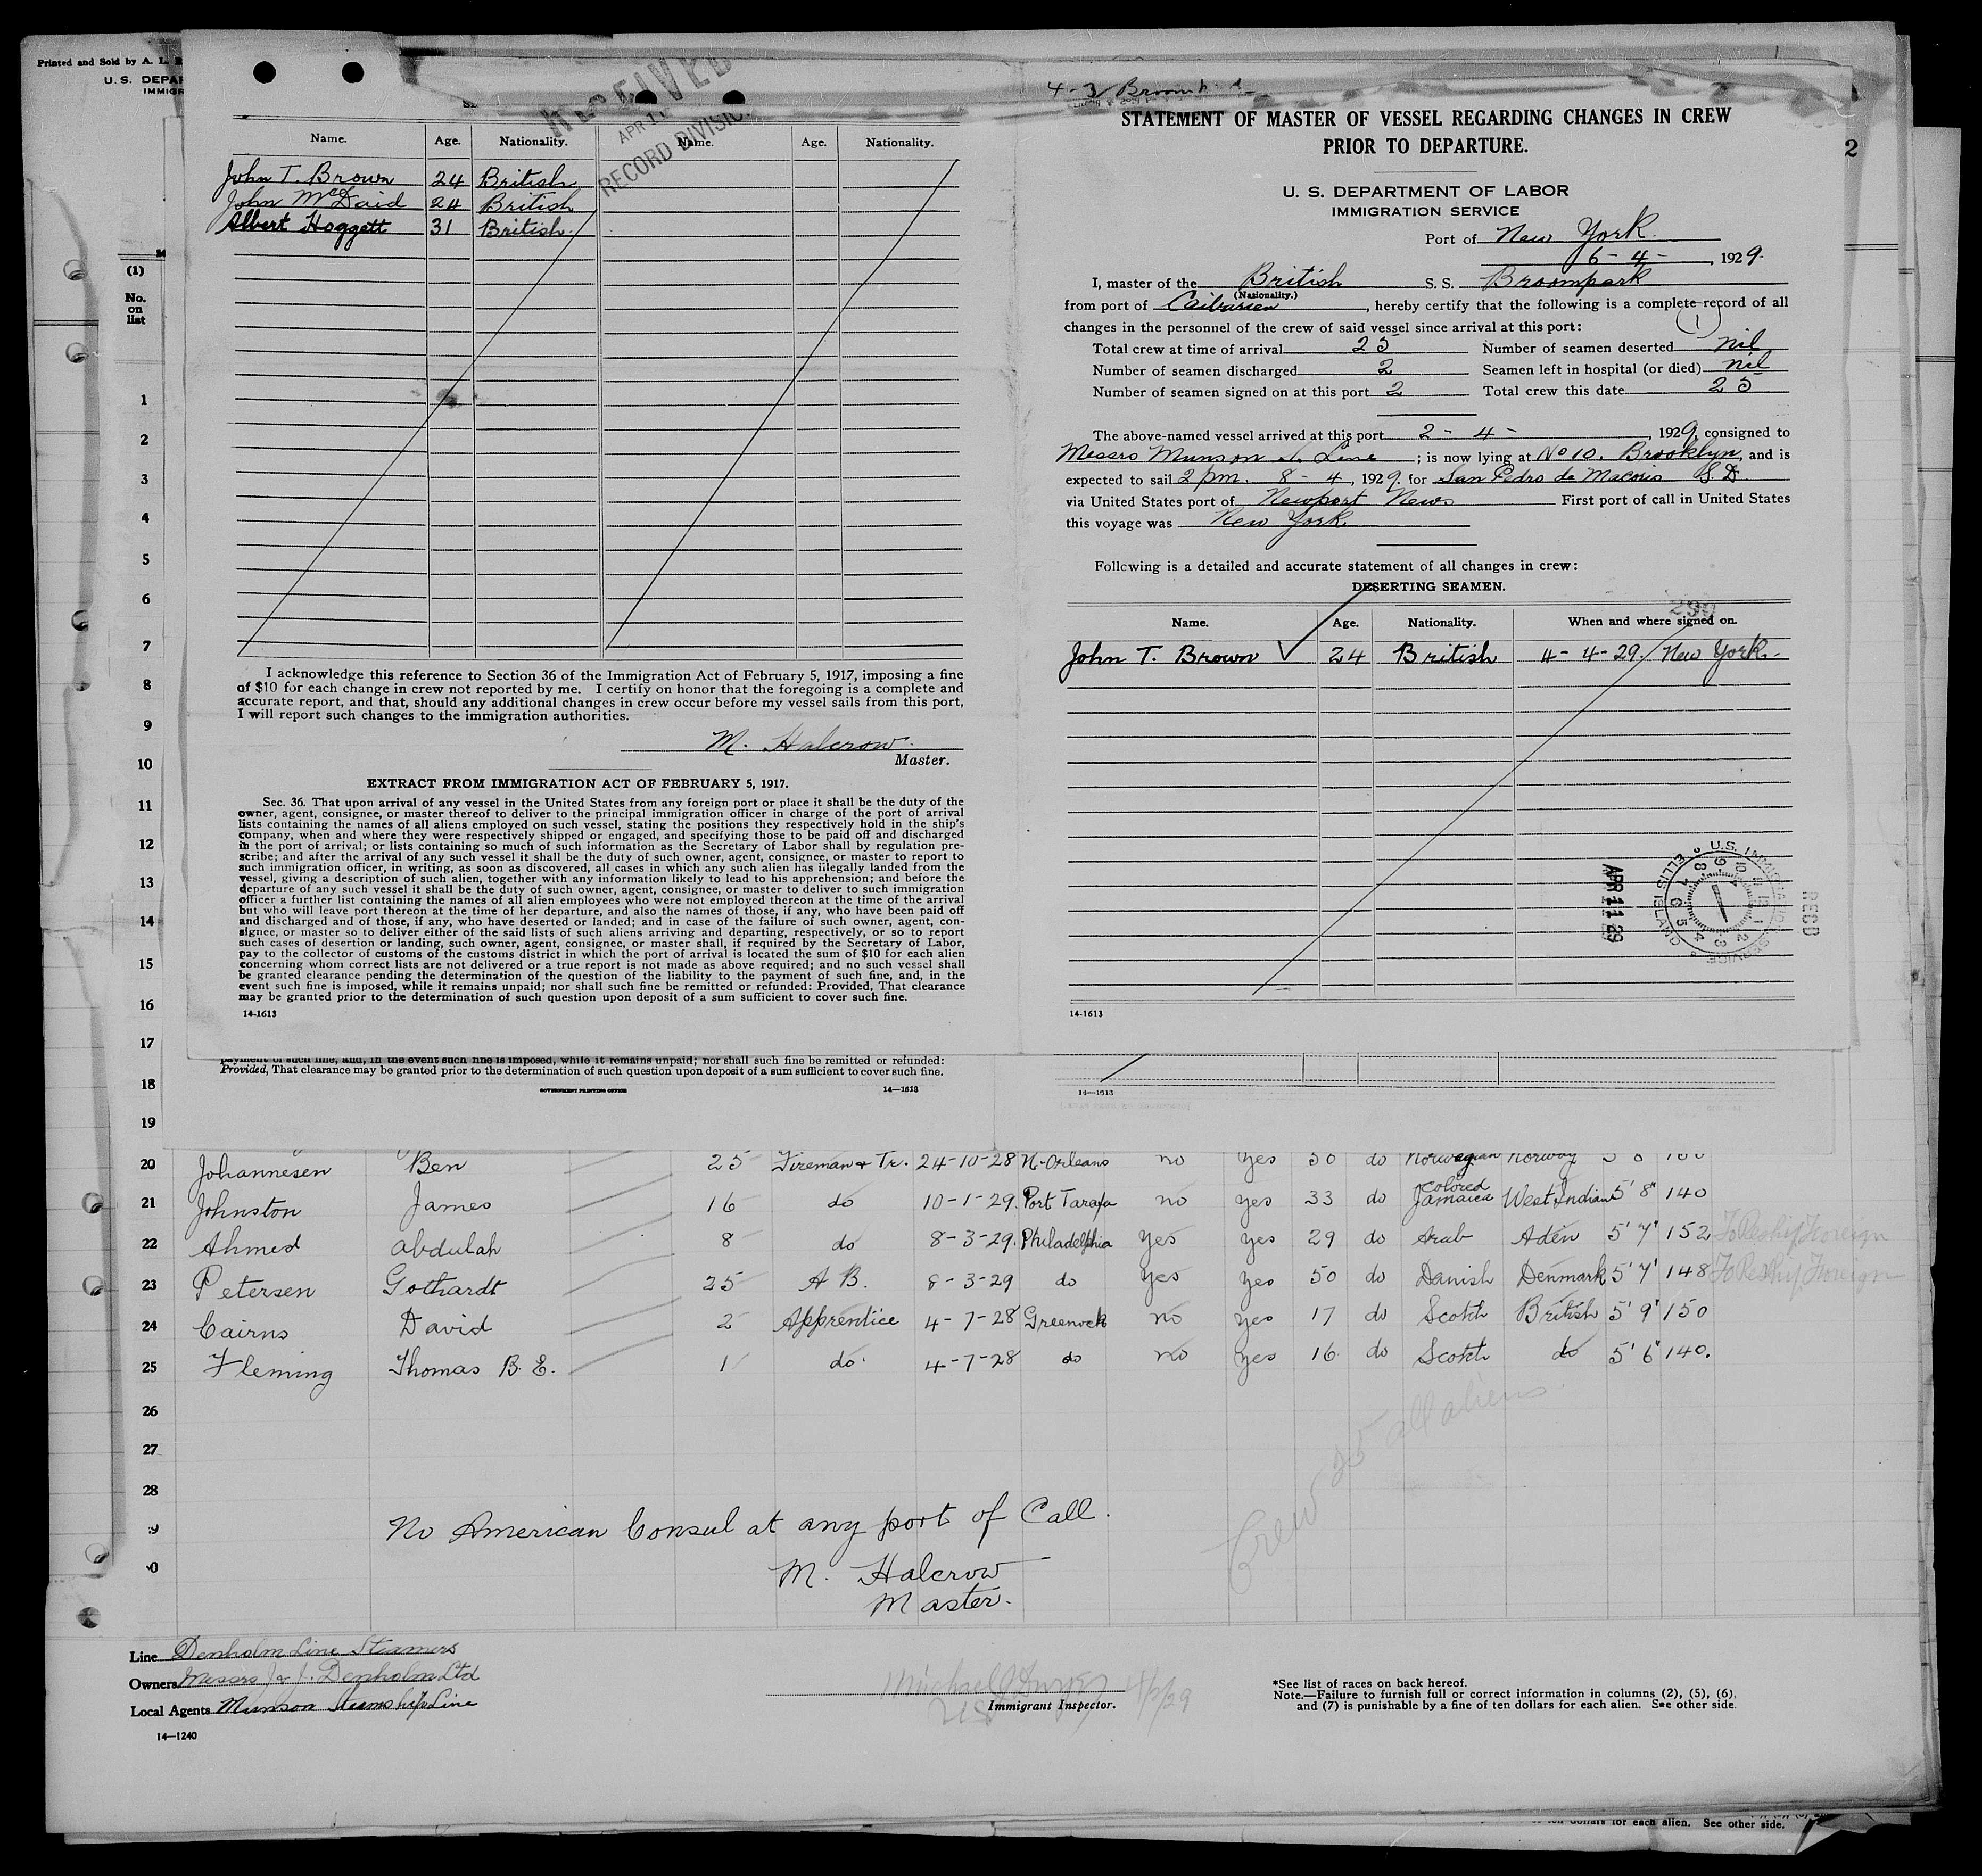 Printed and Sold by A. L.
U. S. DEPAR
IMMIGR
(1)
No.
on
list
RECEIVED
APR 11
RECORD DIVISION
Name. Age. Nationality. Name. Age. Nationality.
John T. Brown 24 British
John McDaid 24 British
Albert Hoggett 31 British
I acknowledge this reference to Section 36 of the Immigration Act of February 5, 1917, imposing a fine
of $10 for each change in crew not reported by me. I certify on honor that the foregoing is a complete and
accurate report, and that, should any additional changes in crew occur before my vessel sails from this port,
I will report such changes to the immigration authorities.
M. Halcrow.
Master.
EXTRACT FROM IMMIGRATION ACT OF FEBRUARY 5, 1917.
Sec. 36. That upon arrival of any vessel in the United States from any foreign port or place it shall be the duty of the
owner, agent, consignee, or master thereof to deliver to the principal immigration officer in charge of the port of arrival
lists containing the names of all aliens employed on such vessel, stating the positions they respectively hold in the ship's
company, when and where they were respectively shipped or engaged, and specifying those to be paid off and discharged
in the port of arrival; or lists containing so much of such information as the Secretary of Labor shall by regulation pre-
scribe; and after the arrival of any such vessel it shall be the duty of such owner, agent, consignee, or master to report to
such immigration officer, in writing, as soon as discovered, all cases in which any such alien has illegally landed from the
vessel, giving a description of such alien, together with any information likely to lead to his apprehension; and before the
departure of any such vessel it shall be the duty of such owner, agent, consignee, or master to deliver to such immigration
officer a further list containing the names of all alien employees who were not employed thereon at the time of the arrival
but who will leave port thereon at the time of her departure, and also the names of those, if any, who have been paid off
and discharged and of those, if any, who have deserted or landed; and in case of the failure of such owner, agent, con-
signee, or master so to deliver either of the said lists of such aliens arriving and departing, respectively, or so to report
such cases of desertion or landing, such owner, agent, consignee, or master shall, if required by the Secretary of Labor,
pay to the collector of customs of the customs district in which the port of arrival is located the sum of $10 for each alien
concerning whom correct lists are not delivered or a true report is not made as above required; and no such vessel shall
be granted clearance pending the determination of the question of the liability to the payment of such fine, and, in the
event such fine is imposed, while it remains unpaid; nor shall such fine be remitted or refunded: Provided, That clearance
may be granted prior to the determination of such question upon deposit of a sum sufficient to cover such fine.
14-1613
payment of such fine, and, in the event such fine is imposed, while it remains unpaid; nor shall such fine be remitted or refunded:
Provided, That clearance may be granted prior to the determination of such question upon deposit of a sum sufficient to cover such fine.
GOVERNMENT PRINTING OFFICE 14—1613
4-3
STATEMENT OF MASTER OF VESSEL REGARDING CHANGES IN CREW
PRIOR TO DEPARTURE.
2
U. S. DEPARTMENT OF LABOR
IMMIGRATION SERVICE
Port of New York.
6-4-, 1929.
I, master of the British S. S. Broompark
(Nationality.)
from port of Caibarien, hereby certify that the following is a complete record of all
(1)
changes in the personnel of the crew of said vessel since arrival at this port:
Total crew at time of arrival 25 Number of seamen deserted nil
Number of seamen discharged 2 Seamen left in hospital (or died) nil
Number of seamen signed on at this port 2 Total crew this date 25
The above-named vessel arrived at this port 2-4-, 1929, consigned to
Messrs Munson S. Line; is now lying at No 10. Brooklyn, and is
expected to sail 2 pm. 8-4, 1929. for San Pedro de Macoris S.D.
via United States port of Newport News First port of call in United States
this voyage was New York
Following is a detailed and accurate statement of all changes in crew:
DESERTING SEAMEN.
290
Name. Age. Nationality. When and where signed on.
John T. Brown 24 British 4-4-29. New York.
APR 11 29
U.S. IMMIGRATION SERVICE ELLIS ISLAND
REC'D
14-1613
14—1613
1
2
3
4
5
6
7
8
9
10
11
12
13
14
15
16
17
18
19
20 Johannesen Ben 25 Fireman & Tr. 24-10-28 N-Orleans no yes 30 do Norwegian Norway
21 Johnston James 16 do 10-1-29. Port Tarafa no yes 33 do colored Jamaica West Indian 5' 8" 140
22 Ahmed Abdulah 8 do 8-3-29. Philadelphia Yes yes 29 do Arab Aden 5' 7" 152 To Reship Foreign
23 Petersen Gothardt 25 A B. 8-3-29 do Yes yes 50 do Danish Denmark 5' 7" 148 To Reship Foreign
24 Cairns David 2 Apprentice 4-7-28 Greenock no yes 17 do Scotch British 5' 9" 150
25 Fleming Thomas B. E. 1 do. 4-7-28 do no yes 16 do Scotch do 5' 6" 140.
26
27
28
9
0
Crew 25 all aliens.
No American Consul at any port of Call.
M. Halcrow
Master.
Line Denholm Line Steamers
Owners Messrs J & J. Denholm Ltd
Local Agents Munson Steamship Line
14—1240
4/2/29
Immigrant Inspector.
*See list of races on back hereof.
Note.—Failure to furnish full or correct information in columns (2), (5), (6),
and (7) is punishable by a fine of ten dollars for each alien. See other side.
ten dollars for each alien. See other side.